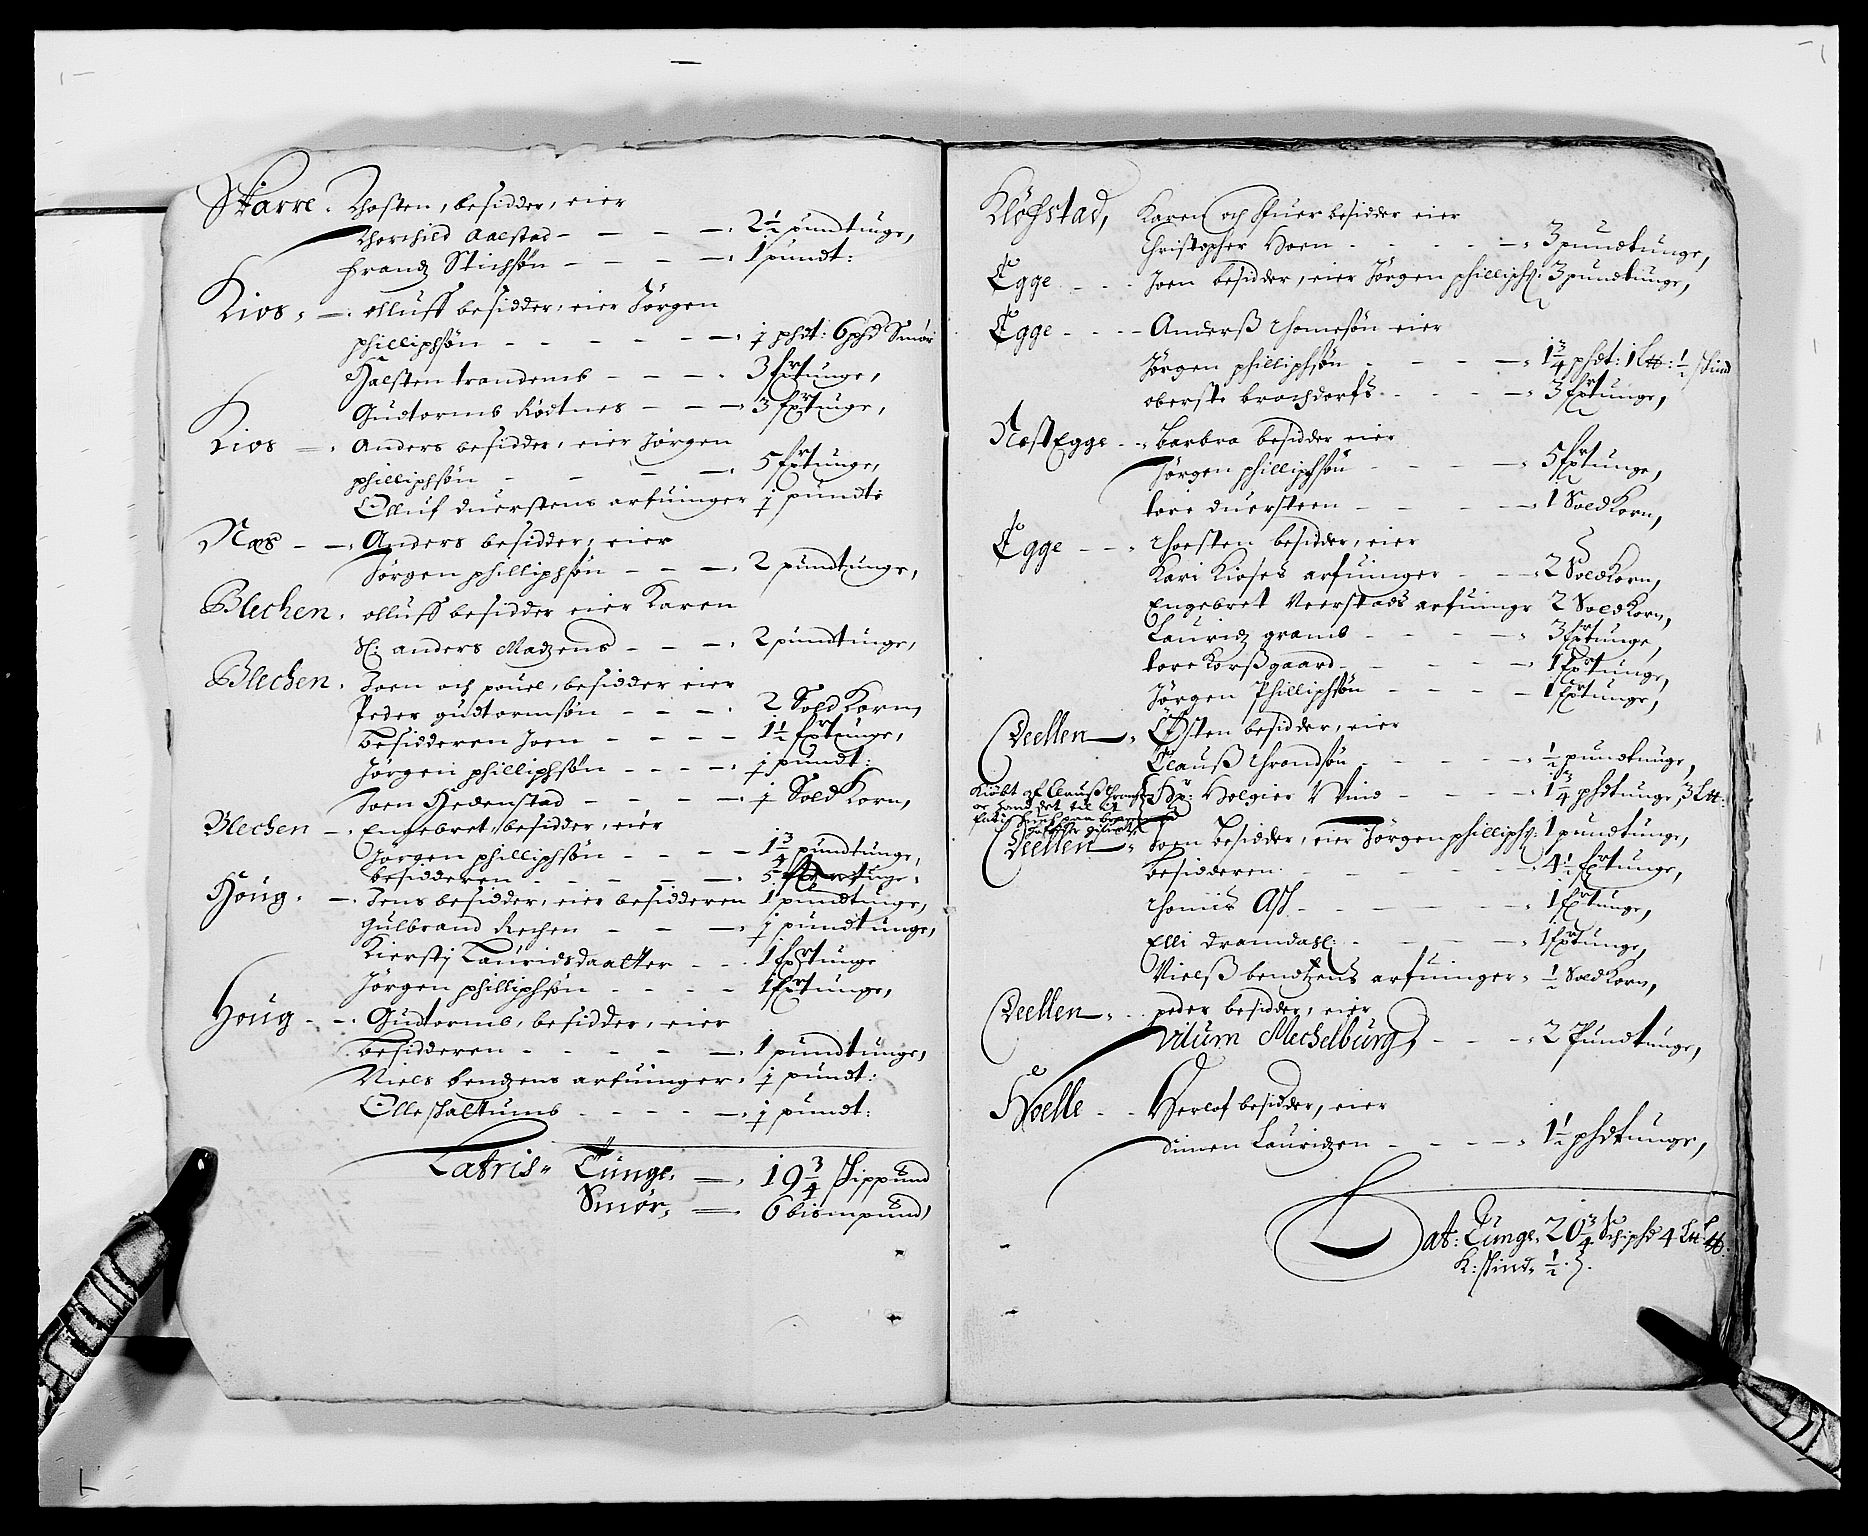 Skarre. Thosten, besidder, eier
Thorchild Aalstad - - - - 2½ pundtunge,
Frandz Stichsön - - - - 1 pundt:
Kios, - olluff besidder, eier Jörgen
phillipsön - - - - - 1 phdt: 6 phd Smör
Halsten trandemb - - - 3 fxrtunge,
Gudtormb Rödtnes - - - 3 fxrtunge,
Kios - Anders besidder, eier Jörgen
phillipsön - - - - - 5 fxrtunge,
Olluf duerstens arfuinger 1 pundt
Næs - - Anders besidder, eier
Jörgen phillipsön - - - 2 pundtunge,
Blechen, olluff besidder eier Karen
Sl: anders Madzens - - - 2 pundtunge,
Blechen, Joen och pouel, besidder eier
Peder gudtormsön - - - 2 Sold Korn,
besidderen Joen - - - - 1½ fxrtunge,
Jörgen phillipsön - - - 1 pundt:
Joen Hedenstad - - - - 1 Sold Korn,
Blechen - Engebret, besidder, eier
Jörgen phillipsön - - - - 1¾ pundtunge,
besidderen - - - - - 5 fxrtunge,
Höug, - Jens besidder, eier besidderen 1 pundtunge,
Gulbrand Rechen - - - 1 pundtunge,
Kierstj Lauridsdaatter - - 1 fxrtunge
Jörgen phillipsön - - - - 1 fxrtunge,
Höug - - Gudtormb, besidder, eier
besidderen - - - - - 1 pundtunge,
Niels bendzens arfuinger, 1 pundt:
Olle skattumb - - - - 1 pundt:
Latris, Tunge, - 19¾ skippund
Smör, - 6 bismpund,
Klöfstad, Karen och Siuer besidder eier
Christopher Hoen - - - - - 3 pundtunge,
Egge - - - Joen besidder, eier Jörgen phillips: 3 pundtunge,
Egge - - - Anderß thomesön eier
Jörgen phillipsön - - - - 1¾ phdt: 1 Ltt: ½ skind
oberste brochdorfs - - - - 3 fxrtunge,
NæstEgge - - barbra besidder eier
Jörgen phillipsön - - - - 5 fxrtunge,
tore duersteen - - - - 1 Sold Korn,
Egge - - - thosten besidder, eier
Kari Kioses arfuinger - - - 2 Sold Korn,
Engebret Veerstads arfuinge 2 Sold Korn,
Lauridz gramb - - - - 3 fxrtunge,
tore Korßgaard - - - - 1 fxrtunge,
Jörgen Phillipsön - - - - 1 fxrtunge,
Deellen, Östen besidder, eier
Clauß throndsön - - - - ½ pundtunge,
Kiöbt af Clauß
Hr: Holgier Wind - - - - 1¾ phdtunge, 3 Ltt:
Deellen, Joen besidder, eier Jörgen phillips: 1 pundtunge,
besidderen - - - - - 4½ fxrtunge,
thomis Ass - - - - - 1 fxrtunge,
Elli dramdasl: - - - - 1 fxrtunge,
Nielß bendtzens arfuinger, ½ Sold Korn,
Deellen, - - peder besidder, eier
Vitum Mechelburg, - - - 2 Pundtunge,
Hoelle - - Herlof besidder, eier
dinnen Lauridzen - - - - 1½ phdtunge,
Lat: Tunge, 20¾ Schiphd 4 Ltt
K: skind, ½.